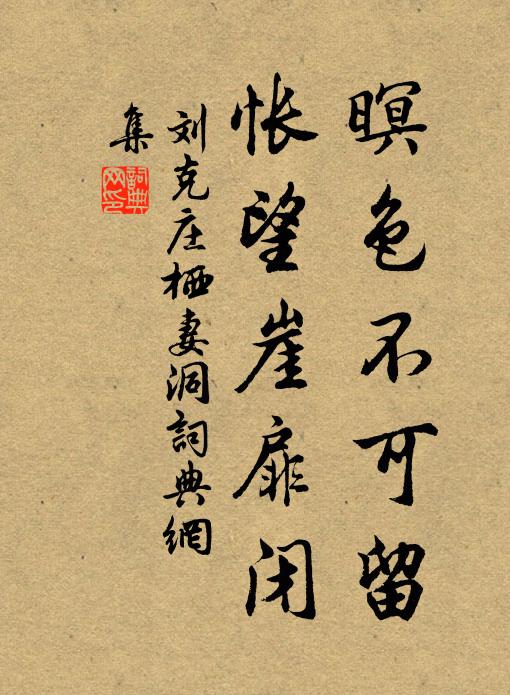 暝色不可留
怅望崖扉闭
刘克庄栖妻洞詞典網
集
詞典网印